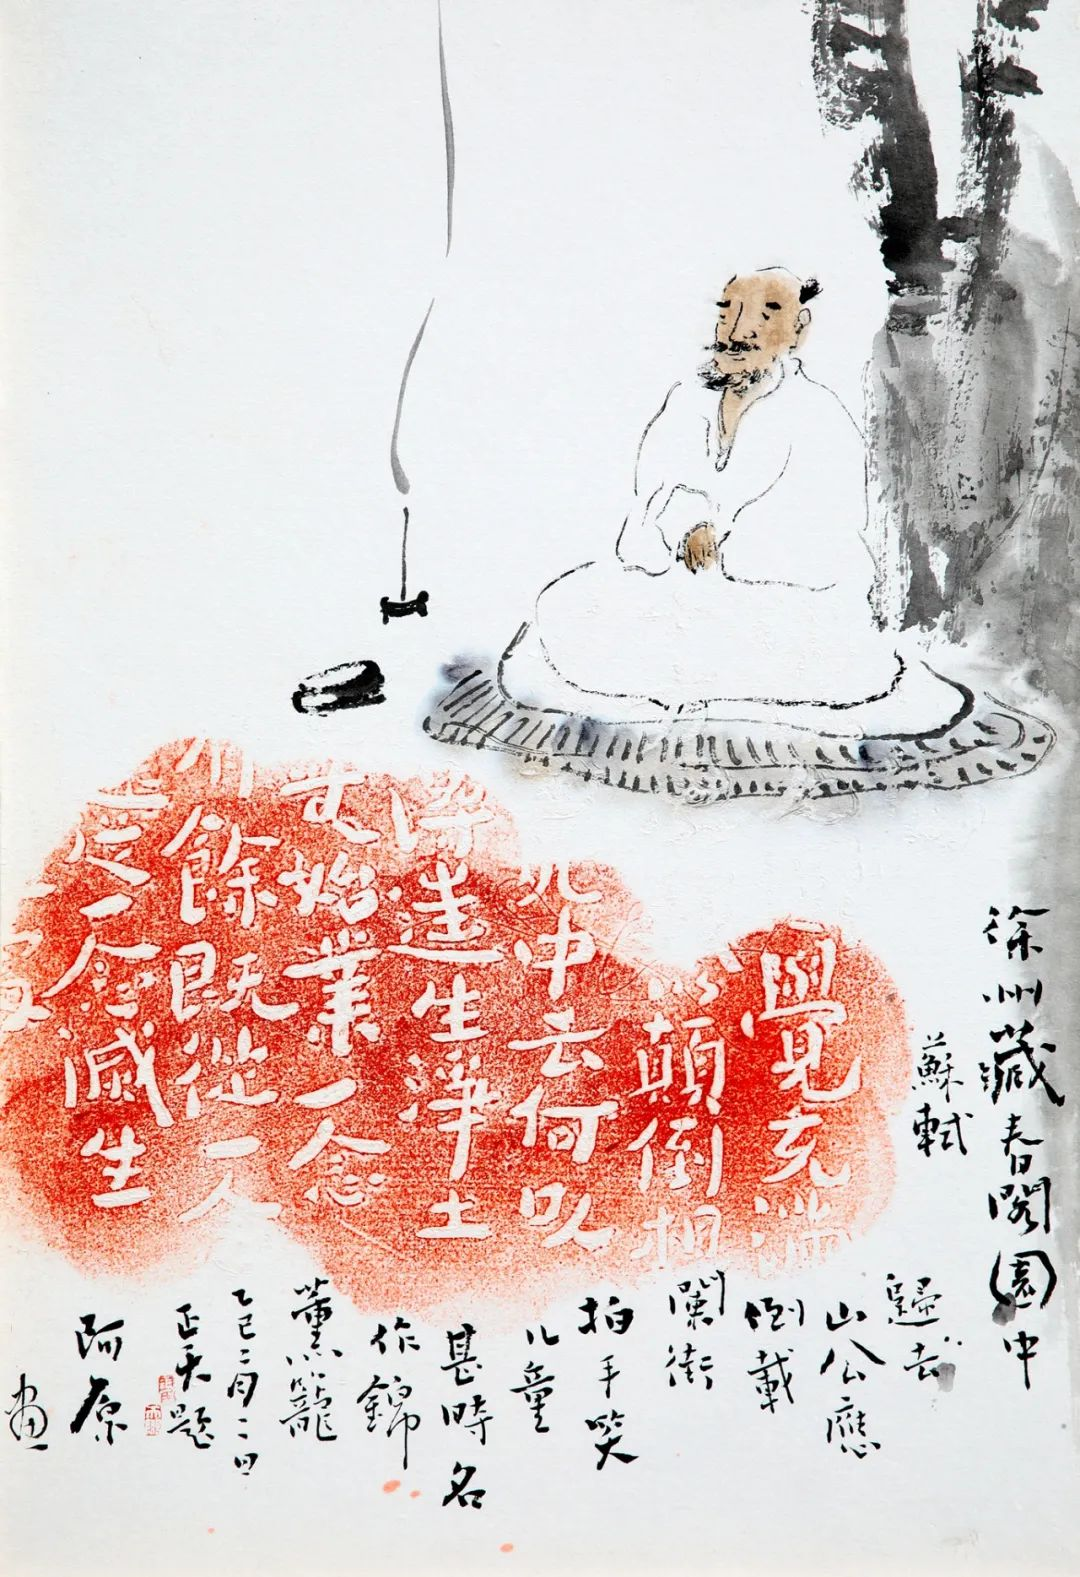 徐州藏春閣園中
蘇軾
歸去
山公應
倒載
闌街
拍手笑
儿童
甚時名
作錦
薰籠
乙巳二月二日
正天題
阿原
畫
覺充滿
顛倒相
中云何以
生淨土
始業一念
餘既從一人
從一念滅生